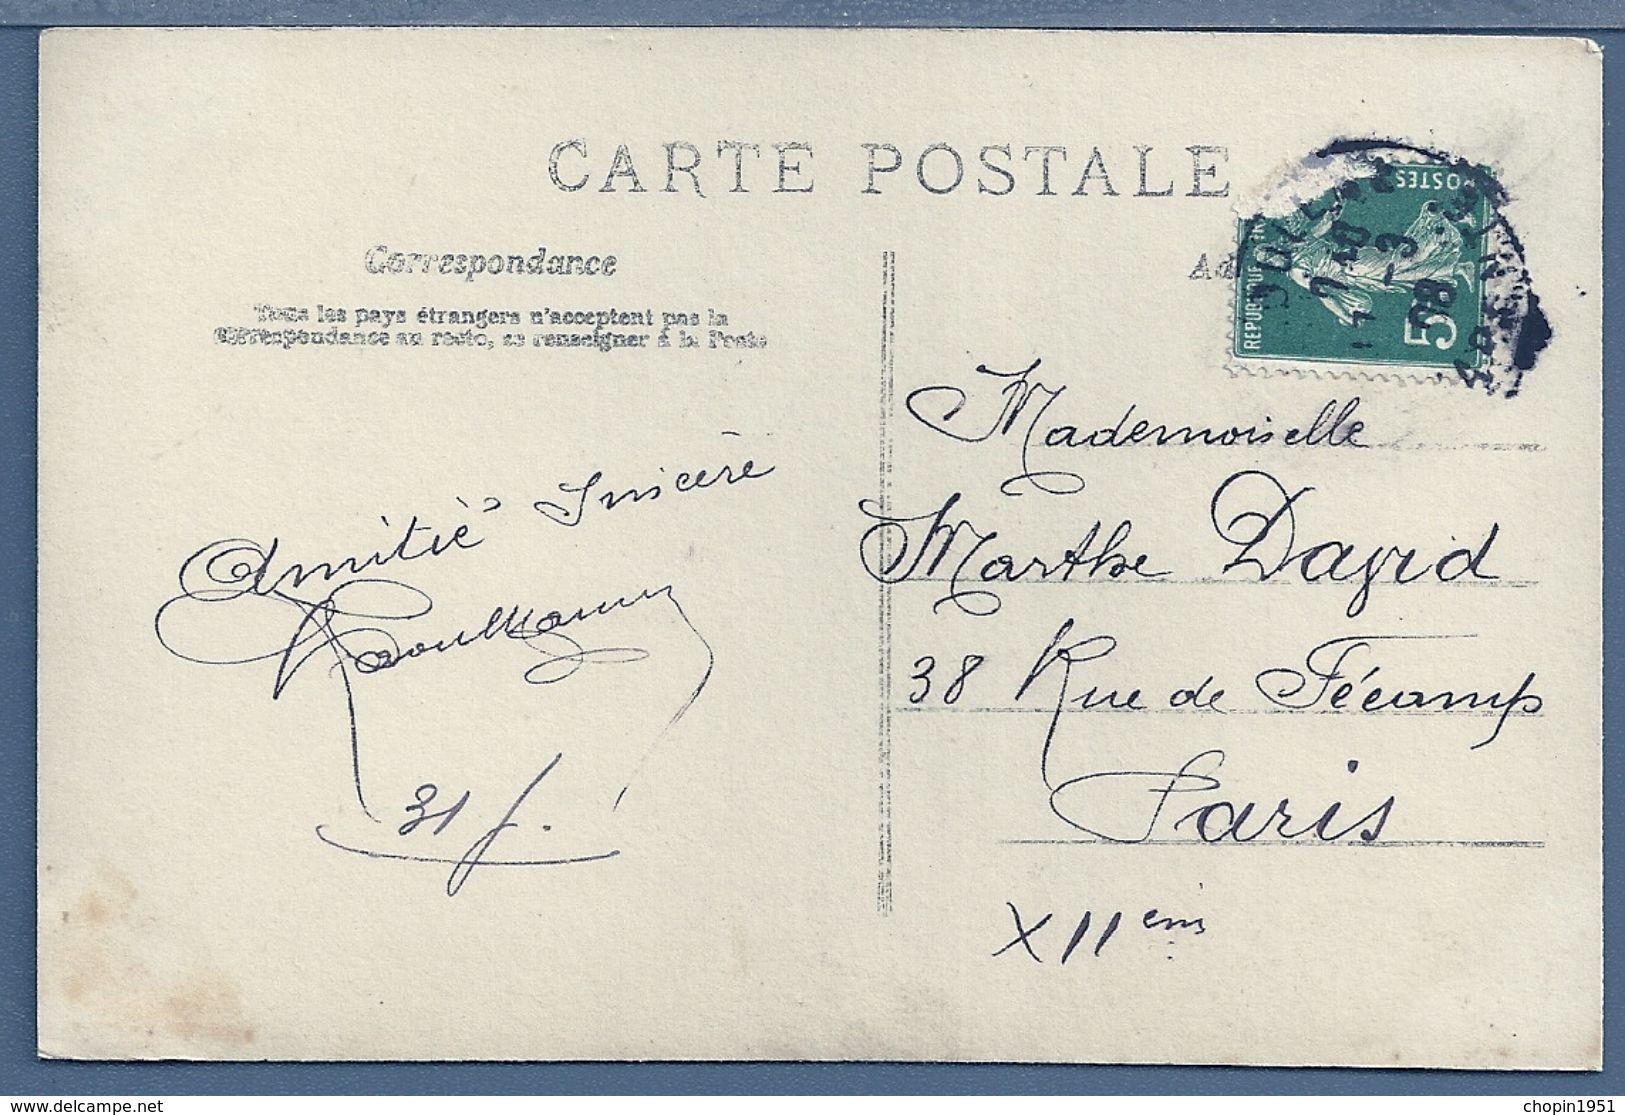 CARTE POSTALE
Correspondance
Tous les pays étrangers n'acceptent pas la
Correspondance au recto, se renseigner à la Poste
POSTES
REPUBLIQUE
5
7 40
4 -3
08
Mademoiselle
Marthe David
38 Rue de Fécamp
Paris
XII em
Amitié Sincère
Raoul
31 f.
chopin1951